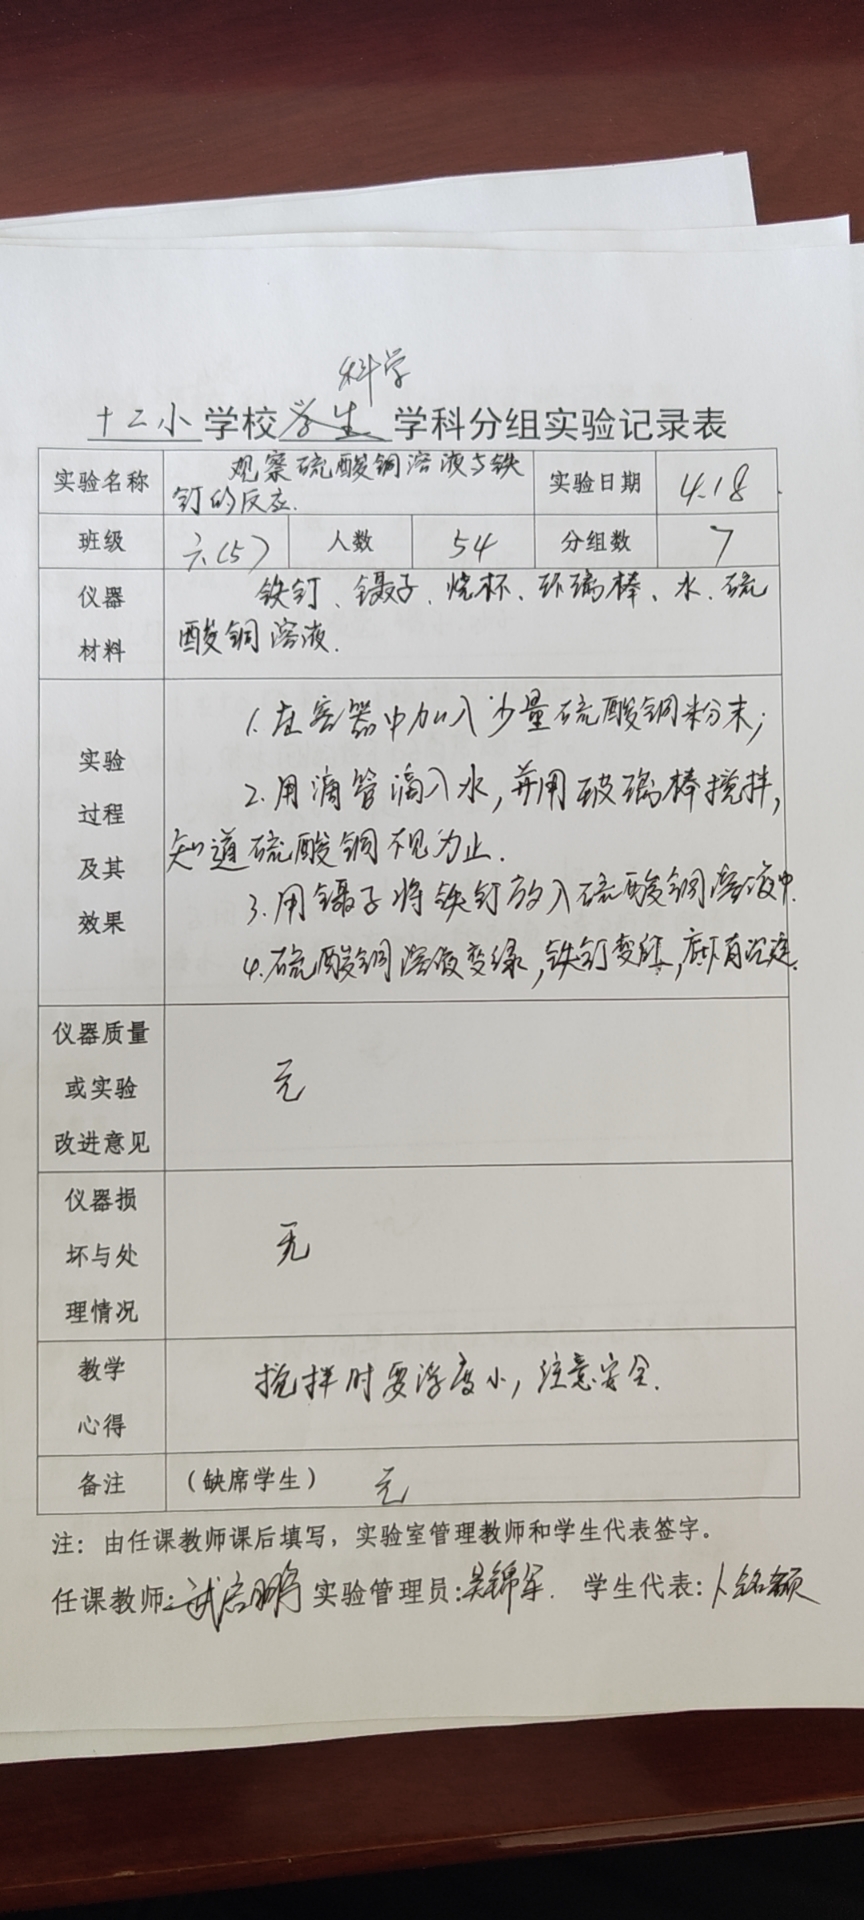 科学
十二小学校学生学科分组实验记录表
实验名称 观察硫酸铜溶液与铁钉的反应. 实验日期 4.18.
班级 六(5) 人数 54 分组数 7
仪器 铁钉、镊子、烧杯、环璃棒、水、硫
材料 酸铜溶液.
实验过程及其效果
1.在容器中加入少量硫酸铜粉末;
2.用滴管滴入水,并用玻璃棒搅拌,
知道硫酸铜不见为止.
3.用镊子将铁钉放入硫酸铜溶液中.
4.硫酸铜溶液变绿,铁钉变红,底下有沉淀.
仪器质量或实验改进意见 无
仪器损坏与处理情况 无
教学心得 搅拌时要浮度小,注意安全.
备注 (缺席学生) 无
注:由任课教师课后填写,实验室管理教师和学生代表签字。
任课教师: 实验管理员:吴锦军. 学生代表: